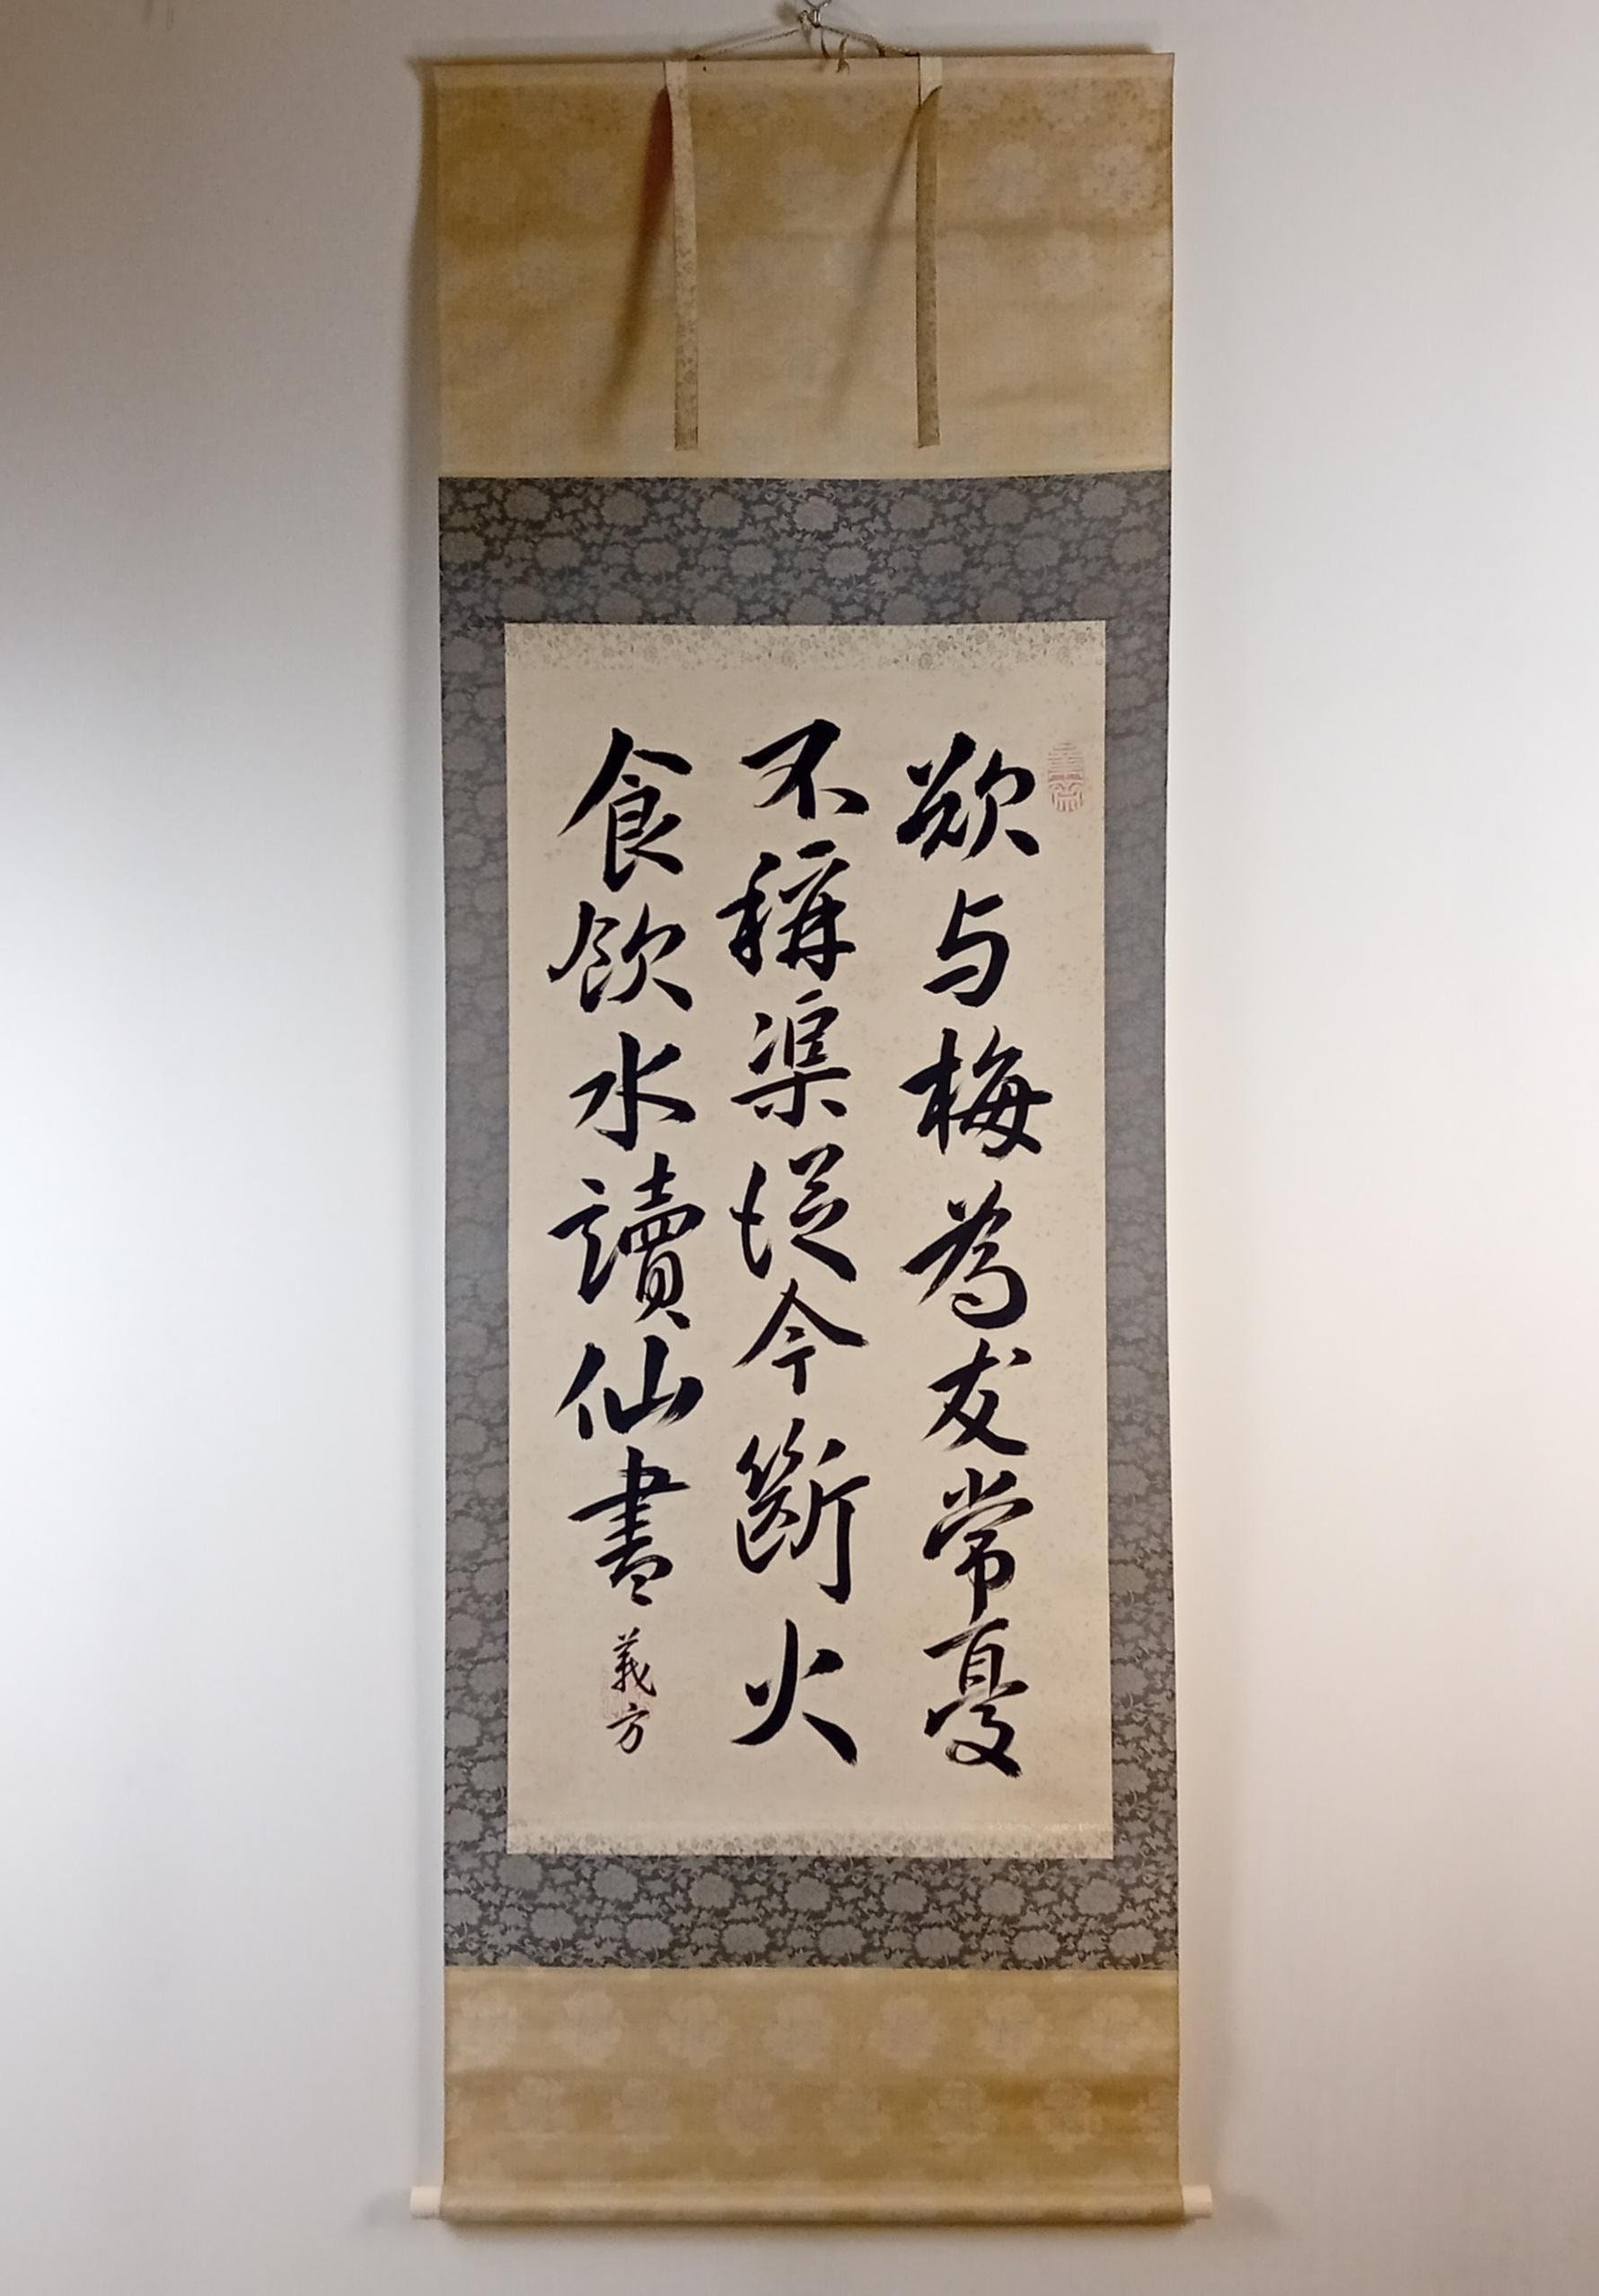 欲与梅為友常憂
不稱渠從今斷火
食飲水讀仙書
義方